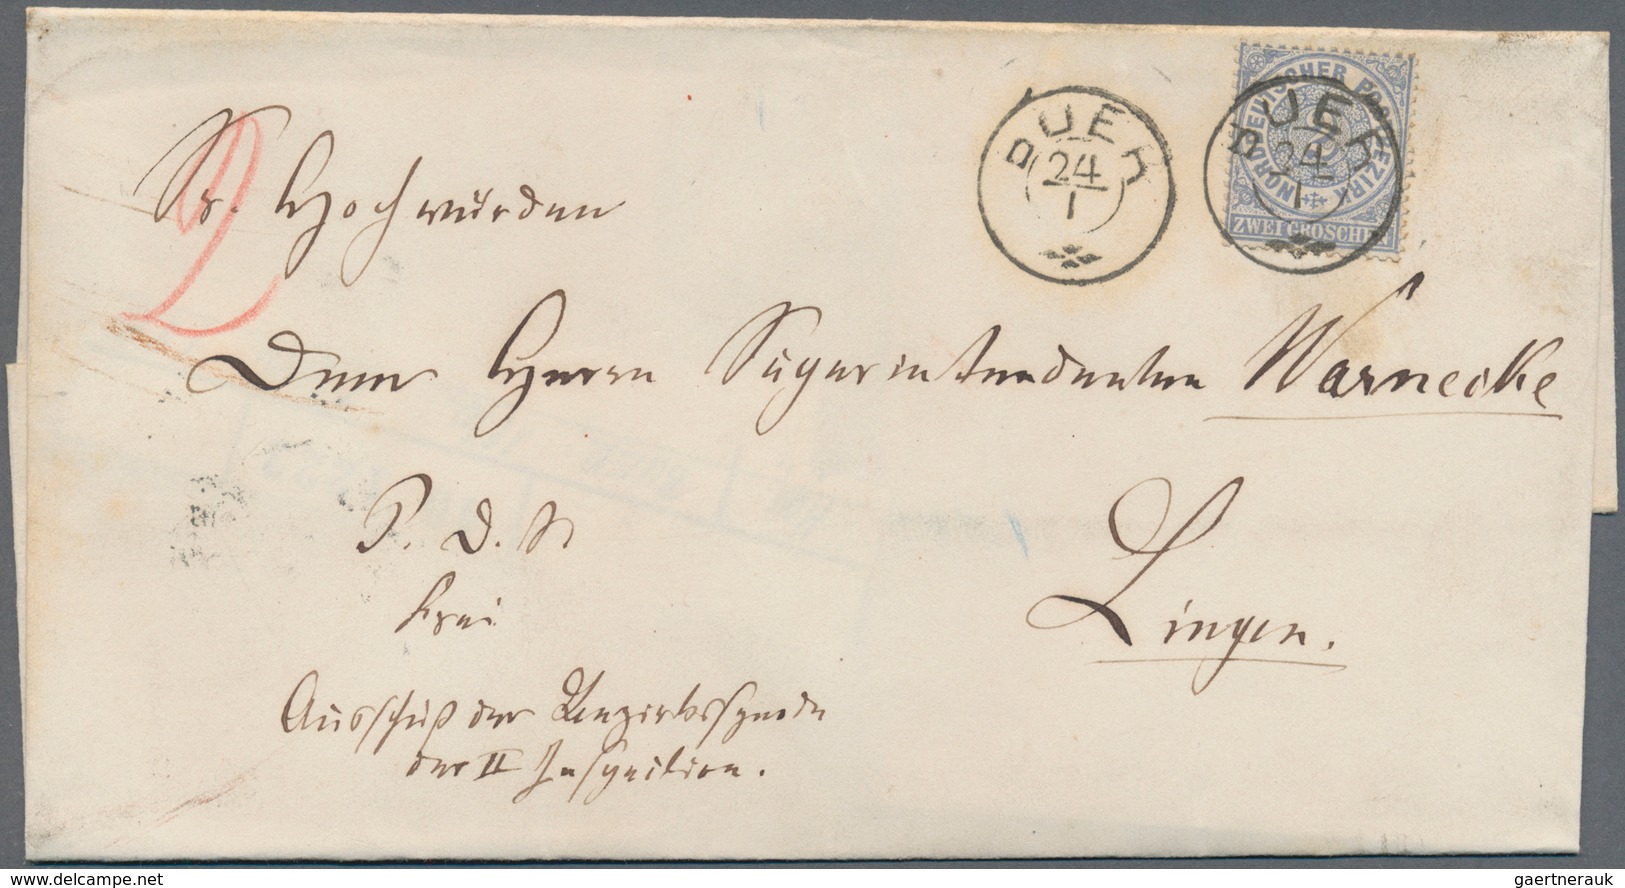 BUER
24
1
BUER
24
1
NORDDEUTSCHER POSTBEZIRK
ZWEI GROSCHEN
2
Sr. Hochwürden
Dem Herrn Superintendenten Warnecke
P. D. S.
Lingen.
frei
Ausschuß der Bezirkssynode
der II Inspection.
gaertnerauk